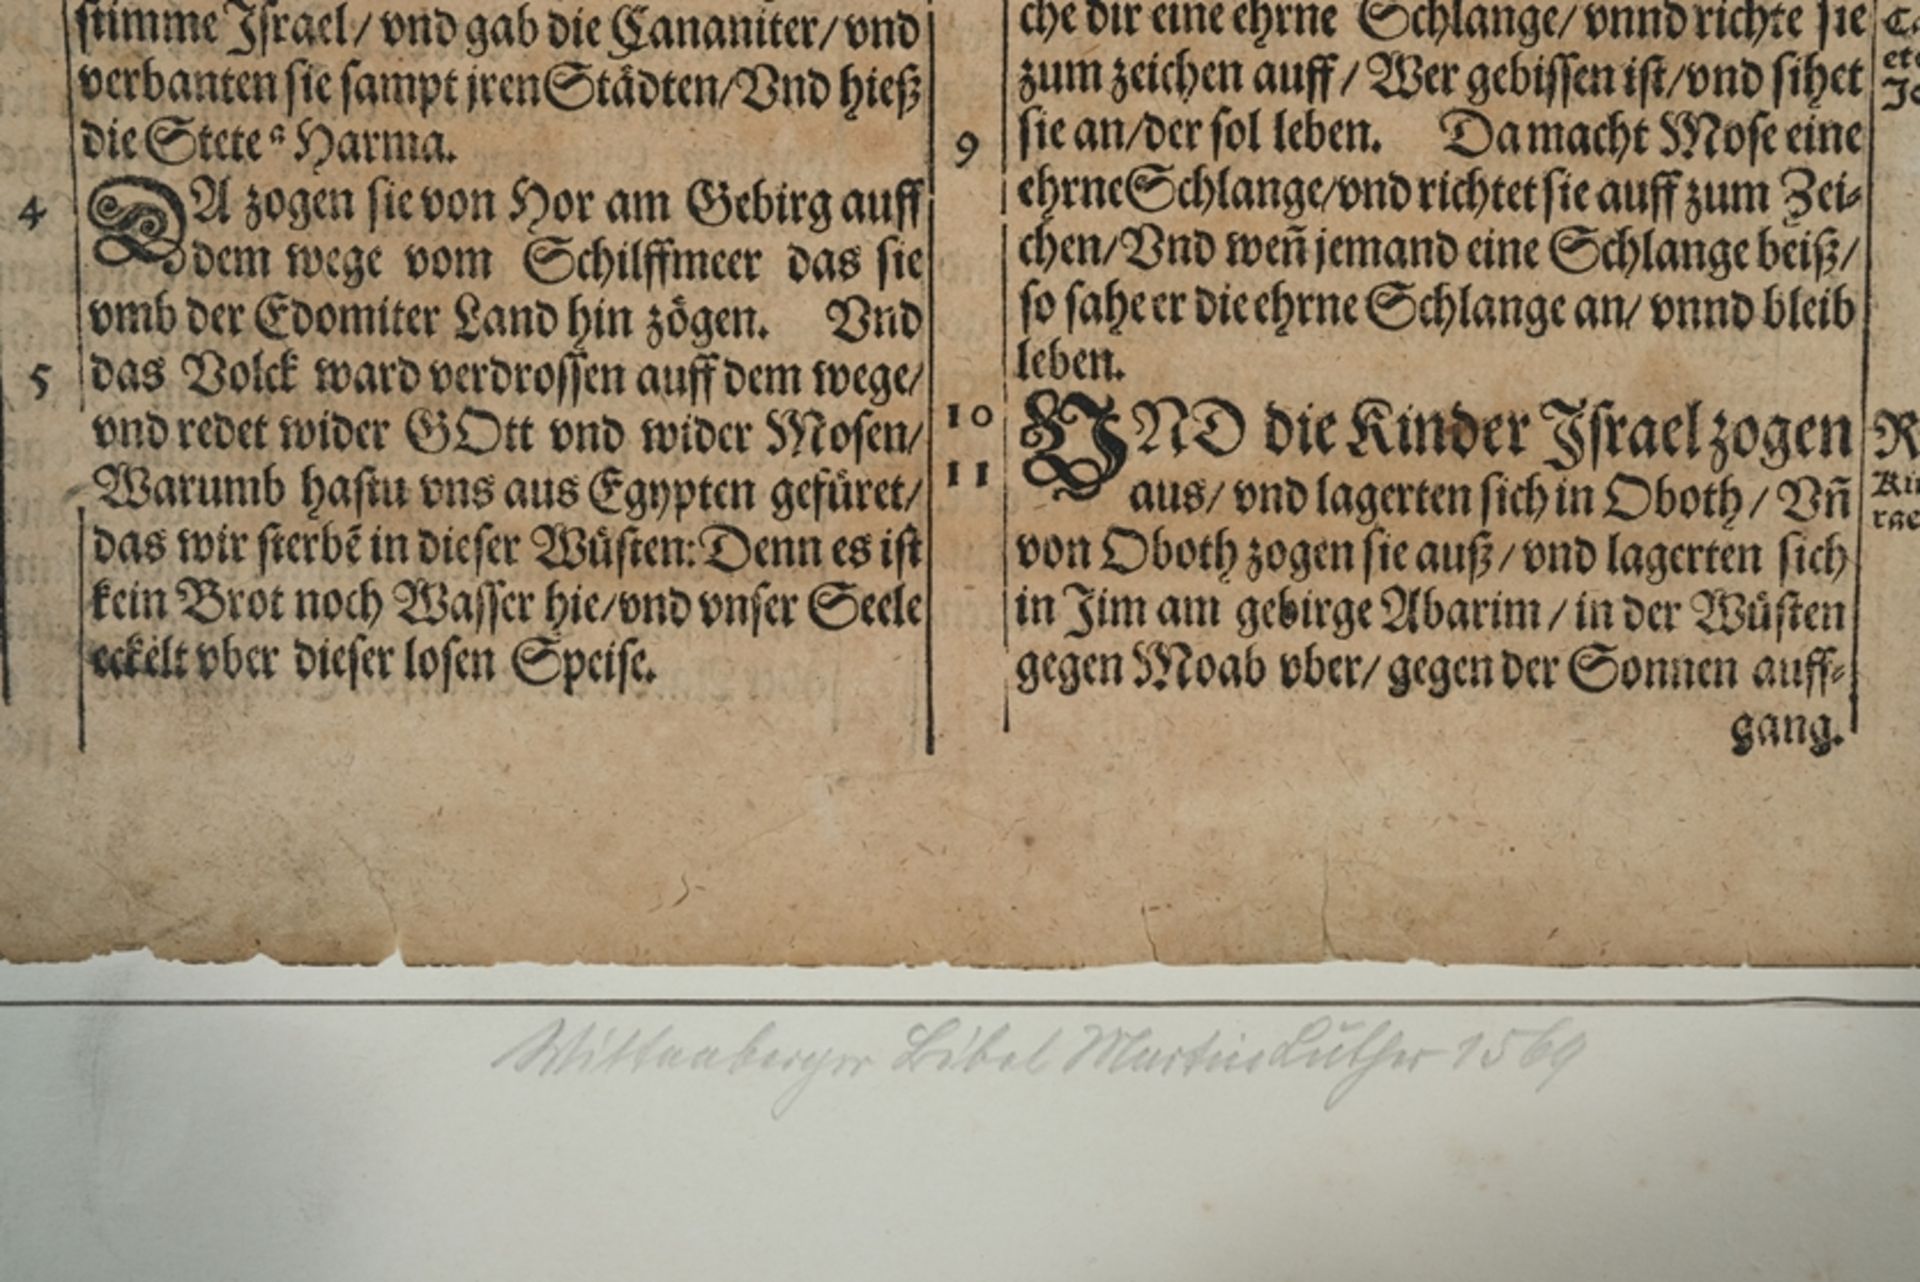 stimme Jsrael / vnd gab die Cananiter / vnd
verbanten sie sampt jren Städten / Vnd hieß
die Stete a Harma.
4 DA zogen sie von Hor am Gebirg auff
dem wege vom Schilffmeer das sie
vmb der Edomiter Land hin zögen. Vnd
5 das Volck ward verdrossen auff dem wege /
vnd redet wider GOtt vnd wider Mosen /
Warumb hastu vns aus Egypten gefüret /
das wir sterbẽ in dieser Wüsten: Denn es ist
kein Brot noch Wasser hie / vnd vnser Seele
eckelt vber dieser losen Speise.
che dir eine ehrne Schlange / vnnd richte sie
zum zeichen auff / Wer gebissen ist / vnd sihet
9 sie an / der sol leben. Da macht Mose eine
ehrne Schlange / vnd richtet sie auff zum Zei-
chen / Vnd weñ jemand eine Schlange beiß /
so sahe er die ehrne Schlange an / vnnd bleib
leben.
10 VND die Kinder Jsrael zogen
11 aus / vnd lagerten sich in Oboth / Vñ
von Oboth zogen sie auß / vnd lagerten sich
in Jim am gebirge Abarim / in der Wüsten
gegen Moab vber / gegen der Sonnen auff-
gang.
Wittenberger Bibel Martin Luther 1569